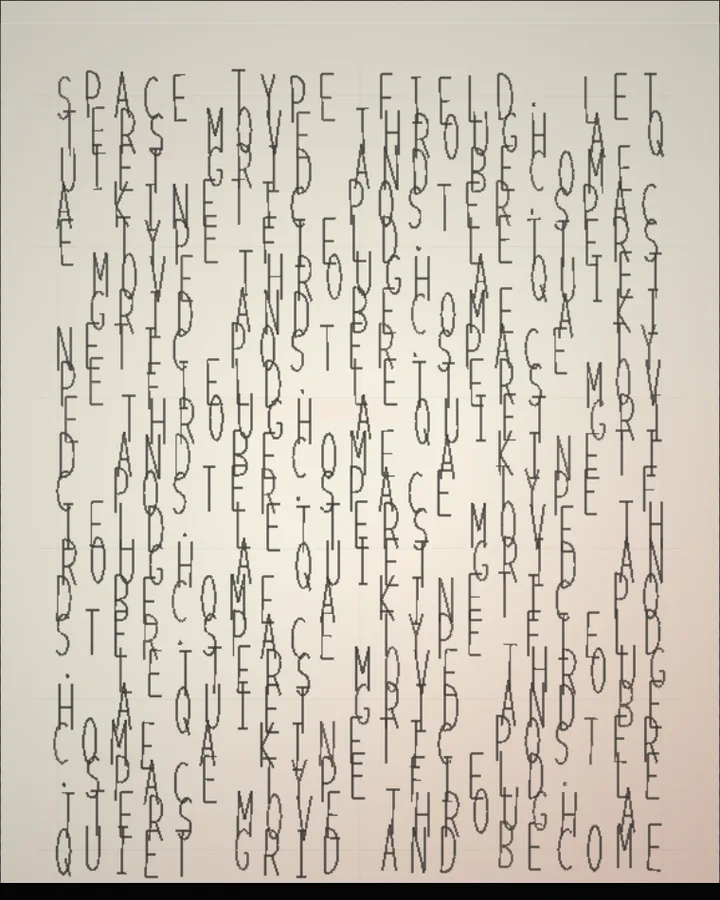 SPACE TYPE FIELD. LET
TERS MOVE THROUGH A Q
UIET GRID AND BECOME
A KINETIC POSTER.SPAC
E TYPE FIELD. LETTERS
MOVE THROUGH A QUIET
GRID AND BECOME A KI
NETIC POSTER.SPACE TY
PE FIELD. LETTERS MOV
E THROUGH A QUIET GRI
D AND BECOME A KINETI
C POSTER.SPACE TYPE F
IELD. LETTERS MOVE TH
ROUGH A QUIET GRID AN
D BECOME A KINETIC PO
STER.SPACE TYPE FIELD
. LETTERS MOVE THROUG
H A QUIET GRID AND BE
COME A KINETIC POSTER
.SPACE TYPE FIELD. LE
TTERS MOVE THROUGH A
QUIET GRID AND BECOME